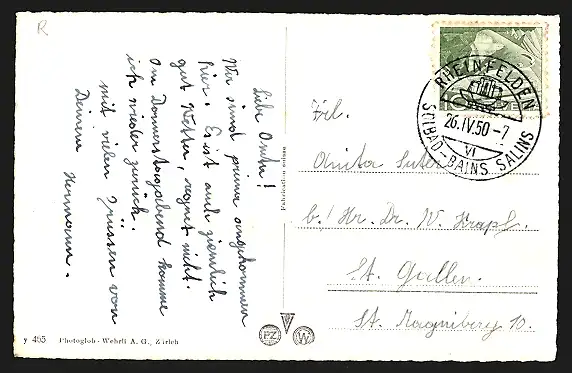 R
Liebe Anita!
Wir sind prima angekommen
hier. Es ist auch ziemlich
gut Wetter, regnet nicht.
Am Donnerstagabend komme
ich wieder zurück.
mit vielen Grüssen von
Deinem Hermann.
RHEINFELDEN
26.IV.50-7
VI
SOLBAD-BAINS SALINS
Frl.
Anita Suter
b/ Hr. Dr. W. Krapf.
St. Gallen.
St. Magniberg 10.
Fabrication suisse
y 405 Photoglob-Wehrli A. G., Zürich
PZ W